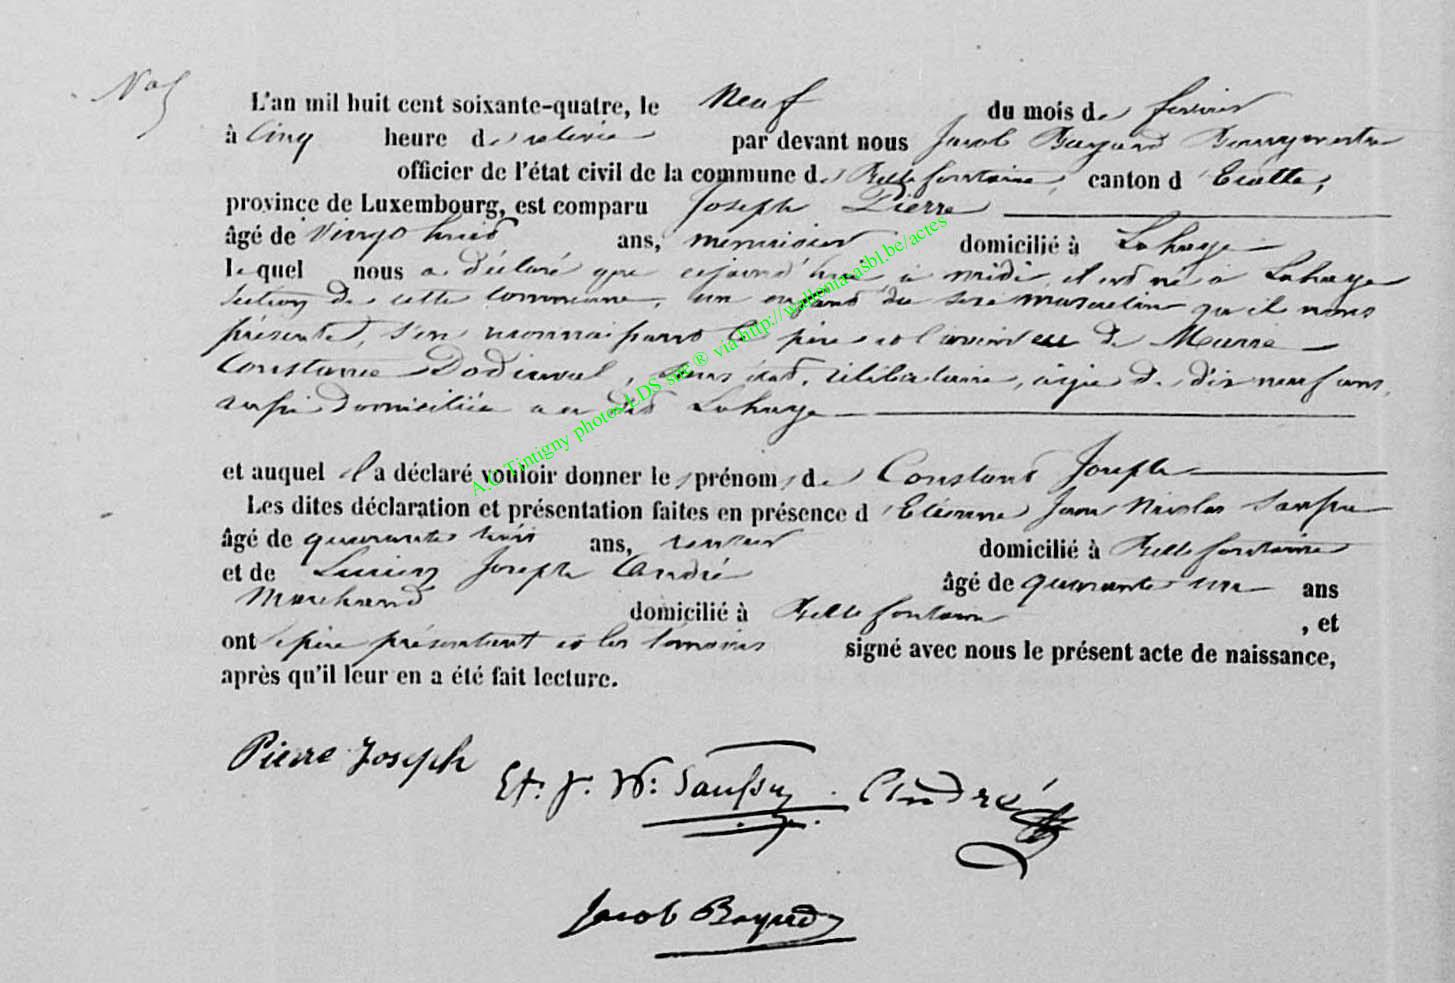 N° 5
L'an mil huit cent soixante-quatre, le Neuf du mois de février
à Cinq heure de relevée par devant nous Jacob Bayard Bourgmestre
officier de l'état civil de la commune de Bellefontaine, canton d'Etalle,
province de Luxembourg, est comparu Joseph Pierre
âgé de Vingt huit ans, menuisier domicilié à Lahage
lequel nous a déclaré que cejourd'hui à midi, il est né à Lahage
section de cette commune, un enfant du sexe masculin qu'il nous
présente, s'en reconnaissant le père et l'avoir eu de Marie
Constance Dodinval, sans état, célibataire, âgée de dix neuf ans,
aussi domiciliée au dit Lahage
et auquel il a déclaré vouloir donner les prénoms de Constant Joseph
Les dites déclaration et présentation faites en présence d'Etienne Jean Nicolas Saussu
âgé de quarante trois ans, rentier domicilié à Bellefontaine
et de Lucien Joseph André âgé de quarante un ans
Marchand domicilié à Bellefontaine, et
ont le père présentant et les témoins signé avec nous le présent acte de naissance,
après qu'il leur en a été fait lecture.
Pierre Joseph Et. J. N: Saussu André
Jacob Bayard
A.C Tintigny photos LDS snc ® via http://wallonia-asbl.be/actes